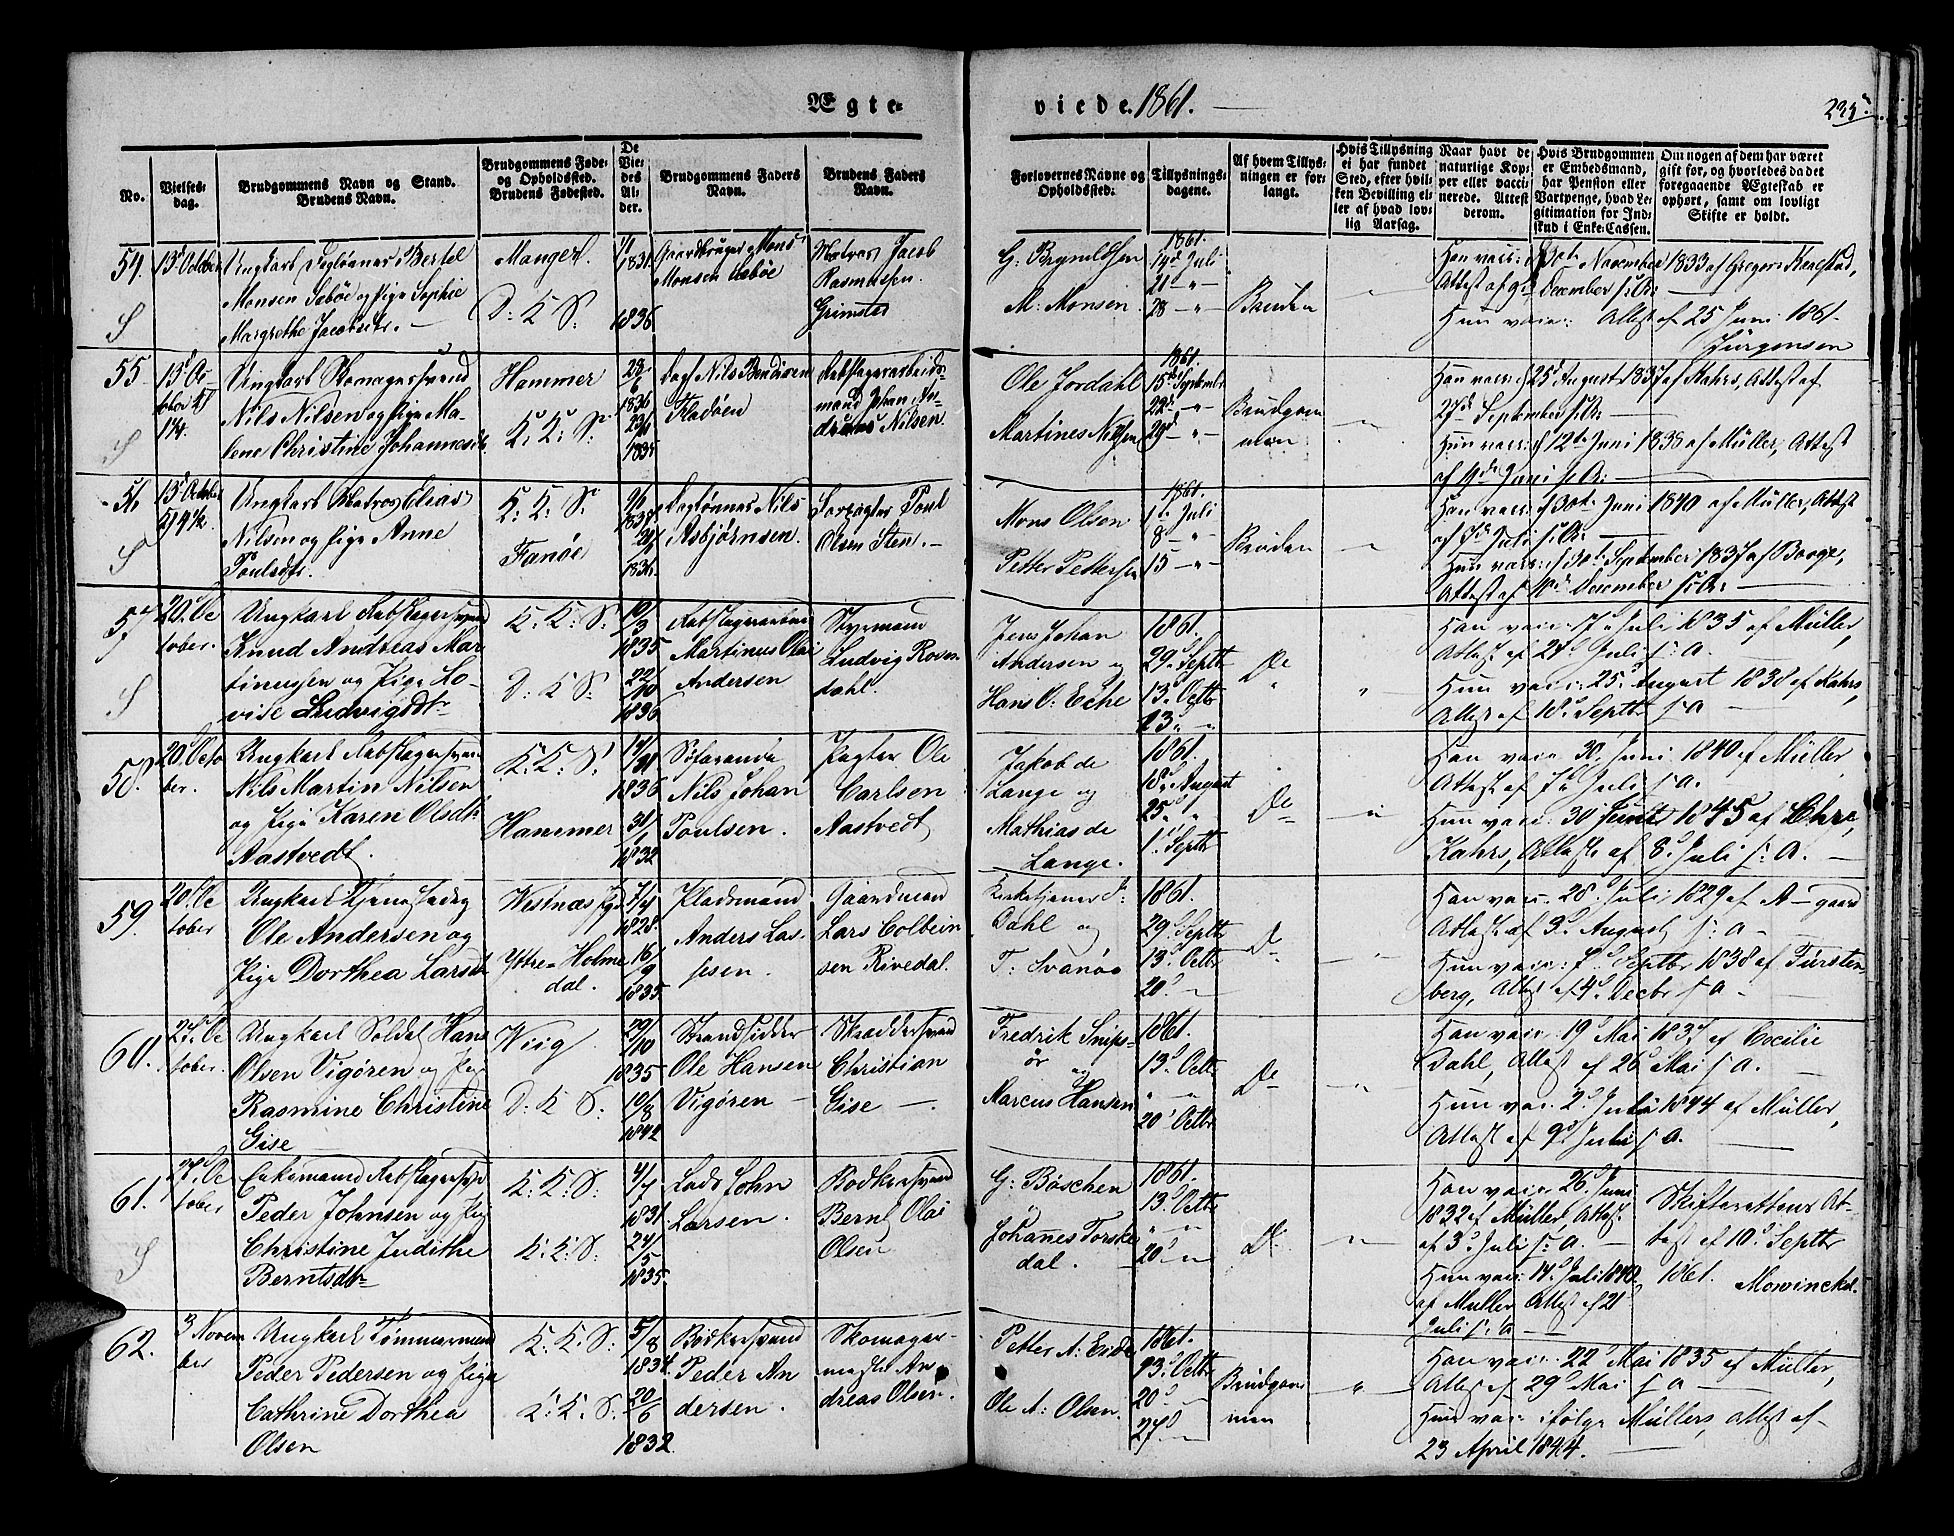 Ægte-
viede. 1861.
No.
Vielses-
dag.
Brudgommens Navn og Stand.
Brudens Navn.
Brudgommens Føde-
og Opholdssted.
Brudens Fødested.
De
Vie-
des
Al-
der.
Brudgommens Faders
Navn.
Brudens Faders
Navn.
Forlovernes Navne og
Opholdssted.
Tillysnings-
dagene.
Af hvem Tillys-
ningen er for-
langt.
Hvis Tillysning
ei har fundet
Sted, efter hvil-
ken Bevilling el-
ler af hvad lov-
lig Aarsag.
Naar havt de
naturlige Kop-
per eller vacci-
nerede. Attest
derom.
Hvis Brudgommen
er Embedsmand,
har Pension eller
Vartpenge, hvad Le-
gitimation for Ind-
skud i Enke-Cassen.
Om nogen af dem har været
gift før, og hvorledes da det
foregaaende Ægteskab er
ophørt, samt om lovligt
Skifte er holdt.
54
13 October
Ungkarl Dagløner Bertel
Monsen Sæbøe og Pige Sophie
Margrethe Jacobsdtr. —
Manger
D: K S:
1831
1836
Gaardbruger Mons
Monsen Sæbøe
Matros Jacob
Rasmussen
Grimsted
G: Brynildsen
M. Monsen
1861.
14d Juli
21 - " -
28 - " -
Bruden
Han vacc: 30t November 1833 af Gregers Kaarstad,
Attest af 9d December s: A: —
Hun vacc: Attest af 25 Juni 1861
Jürgensen
S
55
13d Oc
tober
Ungkarl Skomagersvend
Nils Nilsen og Pige Ma-
lene Christine Johannesdtr
Hammer
K: K: S:
1836
1835
Nils Bendixen
Fladøen
Rebslagerarbeids-
mand Johan An-
dreas Nilsen.
Ole Jordahl
Martines Nilsen
1861
15de Septembr
22d - " -
29d - " -
Brudgom
men
Han vacc: 25d August 1837 af Kahrs, Attest af
27d September s: A: —
Hun vacc: 12t Juni 1838 af Müller, Attest
af 9de Juni s: A: —
S
56
13 October
Ungkarl Matros Elias
Nilsen og Pige Anne
Poulsdtr.
K: K: S:
Fanøe
1837
1836
Dagløner Nils
Asbjørnsen.
Forpagter Poul
Olsen Sten. —
Mons Olson
Petter Pettersen
1861.
1t Juli
8 - " -
15 - " -
Bruden
Han vacc: 30t Juni 1840 af Müller, Attest
af 7d Juli s: A: —
Hun vacc: 30t September 1837 af Booge,
Attest af 10d December s: A: —
S
57
20d Oc
tober.
Ungkarl Rebslagersvend
Knud Andreas Mar-
tinusen og Pige Lo-
vise Ludvigsdtr
K: K: S:
D: K S:
10/3
1835
22/10
1836
Rebslagerarbeider
Martinus Olai
Andersen
Styrmand
Ludvig Rosen
dahl.
Jens Johan
Andersen og
Hans O: Eche
1861.
29d Septbr
13d Octbr
13. "
Do
Han vacc: 17d Juli 1835 af Müller,
Attest af 24d Juli s: a. —
Hun vacc: 25d August 1838 af Kahrs,
Attest af 18d Septbr s: a —
S
58.
20d Octo
ber.
Ungkarl Rebslagersvend
Nils Martin Nilsen
og Pige Karen Olsdtr
Aastvedt.
K: K: S:
Hammer
1836
31/1
1832
Søfarende
Nils Johan
Poulsen.
Pagter Ole
Carlsen
Aastvedt
Jakob de
Lange og
Mathias de
Lange.
1861
18d August
25d " "
1d Septbr
Do
Han vacc: 30 Juni 1840 af Müller,
Attest af 7d Juli s: a.
Hun vacc: 30 Juni 1845 af Chr:
Kahrs, Attest af 8d Juli s: A. —
59.
20d Oc
tober
Ungkarl Tjenestedreng
Ole Andersen og
Pige Dorthea Larsdtr
Westnæs Pgd
Ytre-Holme
dal.
7/4
1828
16/9
1835
Pladsmand
Anders Las-
sesen.
Gaardmand
Lars Colbein
sen Rivedal.
Kirketjener J:
Dahl og
T: Svanøe
1861.
29d Septbr
13d Octbr
20d "
Do
Han vacc: 28d Juli 1829 af A-gaard
Attest af 3d August s: a —
Hun vacc: 7d Septbr 1838 af Fürsten
berg, Attest af 4d Decbr s: a —
60.
27d Oc
tober
Ungkarl Soldat Hans
Olsen Vigøren og Pige
Rasmine Christine
Gise
Wiig
D: K S:
29/10
1835
10/8
1842
Strandsidder
Ole Hansen
Vigøren —
Skræddersvend
Christian
Gise —.
Fredrik Snips-
ør og
Marcus Hansen
1861.
13d Octbr
" "
20d Octbr
Do
Han vacc: 19d Mai 1837 af Cecilie
Dahl, Attest af 26d Mai s: a. —
Hun vacc: 2d Juli 1844 af Müller,
Attest af 9d Juli s: a. —
61.
27d Oc
tober
Enkemand Rebslagersvend
Peder Johnsen og Pige
Christine Judithe
Berntsdtr
K: K: S:
K: K: S:
4/7
1831
24/5
1835
Lods John
Larsen.
Bødkersvend
Bernt Olai
Olsen
G: Böschen
Johannes Torske
dal.
1861.
13d Octbr
" "
20d "
Do
Han vacc: 26d Juni
1832 af Müller, Attest
af 3d Juli s: a. —
Hun vacc: 14d Juli 1840
af Müller Attest af 21
Juli s: a —
Skifterettens At-
test af 10d Septbr
1861. Mowinckel.
S
62.
3 Novem
ber
Ungkarl Tømmermand
Peder Pedersen og Pige
Cathrine Dorthea
Olsen
K: K: S:
K: K: S:
5/8
1834
20/6
1832
Bødkersvend
Peder An
dersen.
Skomager-
mester An
dreas Olsen.
Petter A: Eide
Ole A: Olsen.
1861.
13d Octbr
20d "
27d "
Brudgom
men
Han vacc: 22d Mai 1835 af Müller,
Attest af 29d Mai s: a —
Hun vacc: ifølge Müllers, Attest af
23 April 1844. —